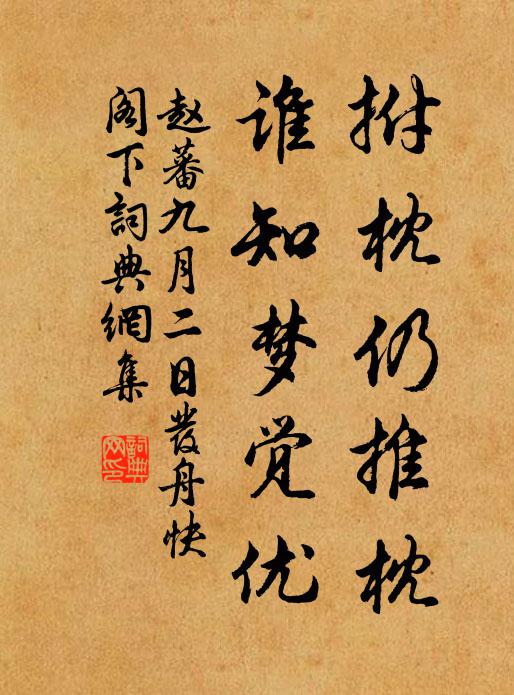 拊枕仍推枕
谁知梦觉优
赵蕃九月二日发舟快
阁下词典網集
詞典网印